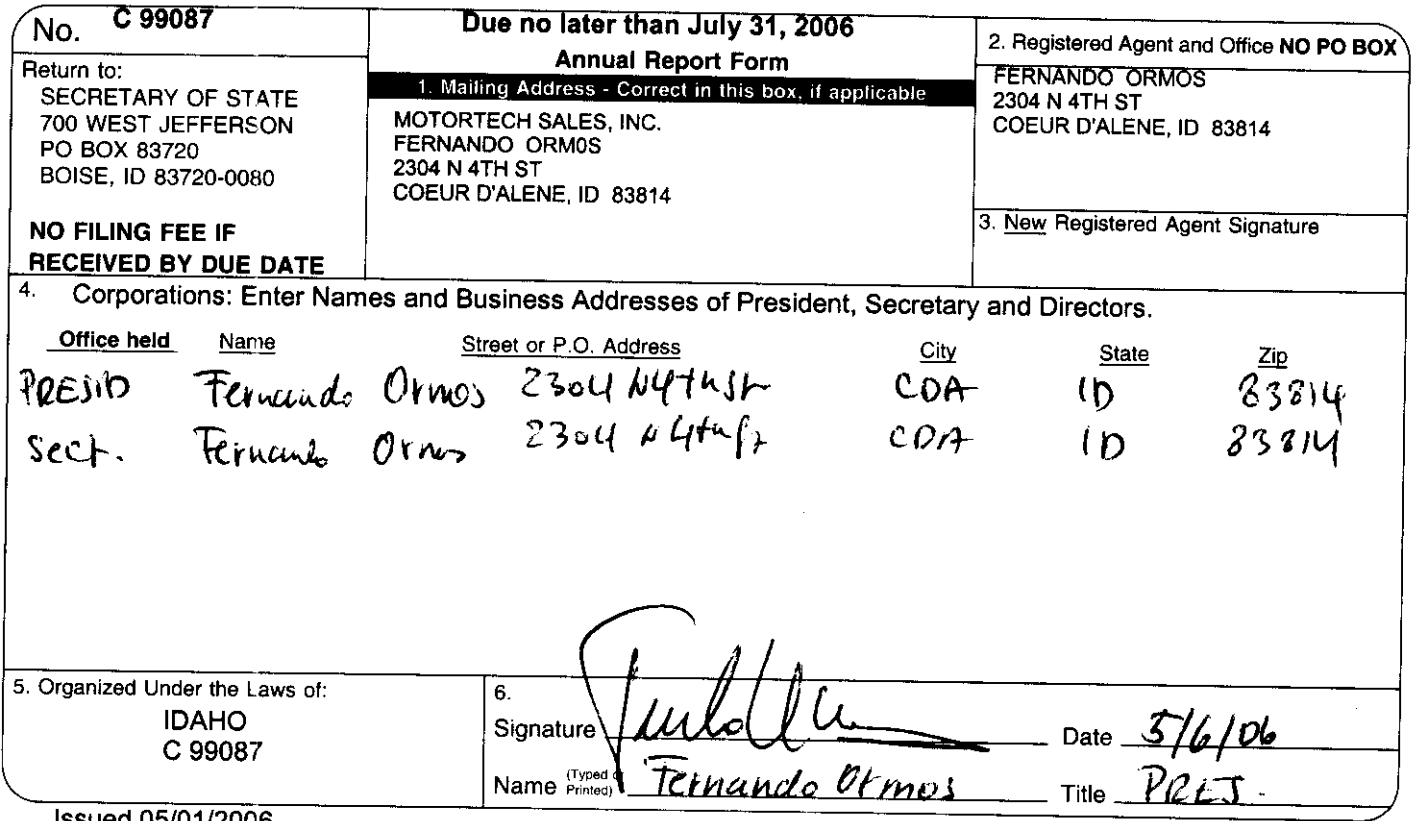 No. C 99087
Return to:
SECRETARY OF STATE
700 WEST JEFFERSON
PO BOX 83720
BOISE, ID 83720-0080
NO FILING FEE IF
RECEIVED BY DUE DATE
Due no later than July 31, 2006
Annual Report Form
1. Mailing Address - Correct in this box, if applicable
MOTORTECH SALES, INC.
FERNANDO ORM0S
2304 N 4TH ST
COEUR D'ALENE, ID 83814
2. Registered Agent and Office NO PO BOX
FERNANDO ORMOS
2304 N 4TH ST
COEUR D'ALENE, ID 83814
3. New Registered Agent Signature
4. Corporations: Enter Names and Business Addresses of President, Secretary and Directors.
Office held Name Street or P.O. Address City State Zip
PRESID Fernando Ormos 2304 N 4th St CDA ID 83814
Sect. Fernando Ormos 2304 N 4th St CDA ID 83814
5. Organized Under the Laws of:
IDAHO
C 99087
6.
Signature Date 5/6/06
Name (Typed Printed) Fernando Ormos Title PRES.
Issued 05/01/2006